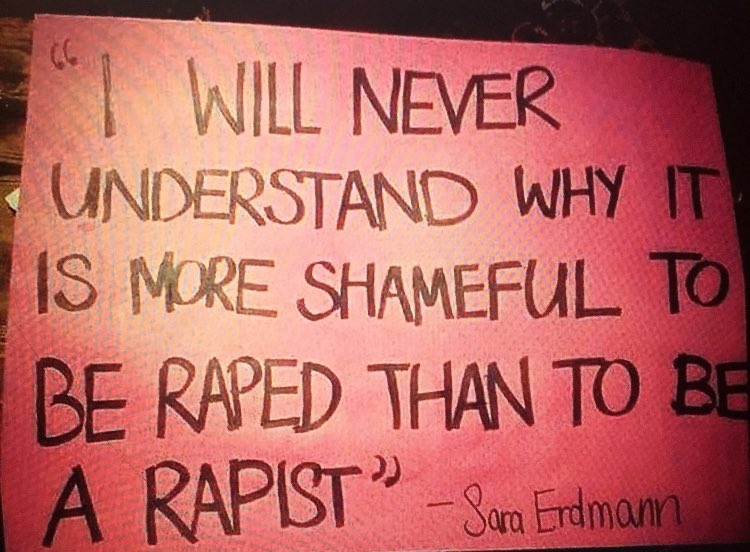 "I WILL NEVER
UNDERSTAND WHY IT
IS MORE SHAMEFUL TO
BE RAPED THAN TO BE
A RAPIST" - Sara Erdmann